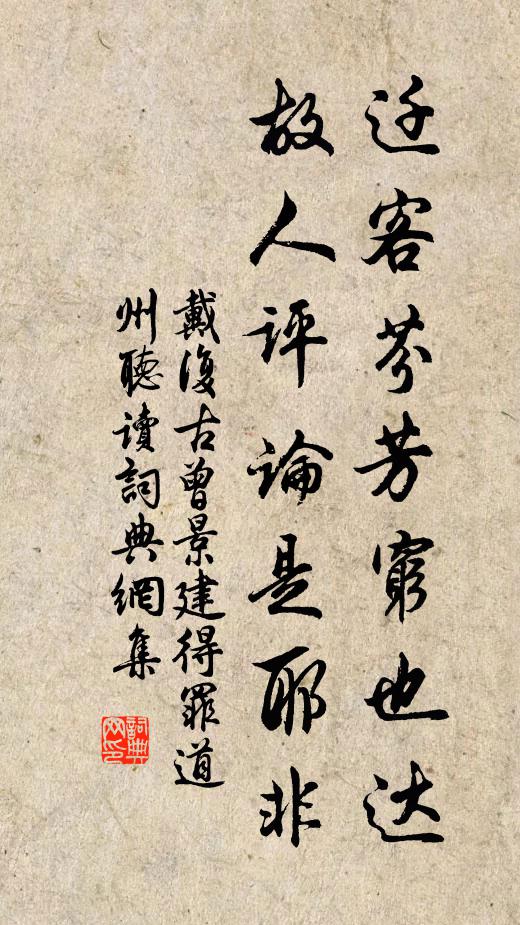 迁客芬芳窮也达
故人评論是耶非
戴復古曾景建得罪道
州聽读詞典網集
詞典网印